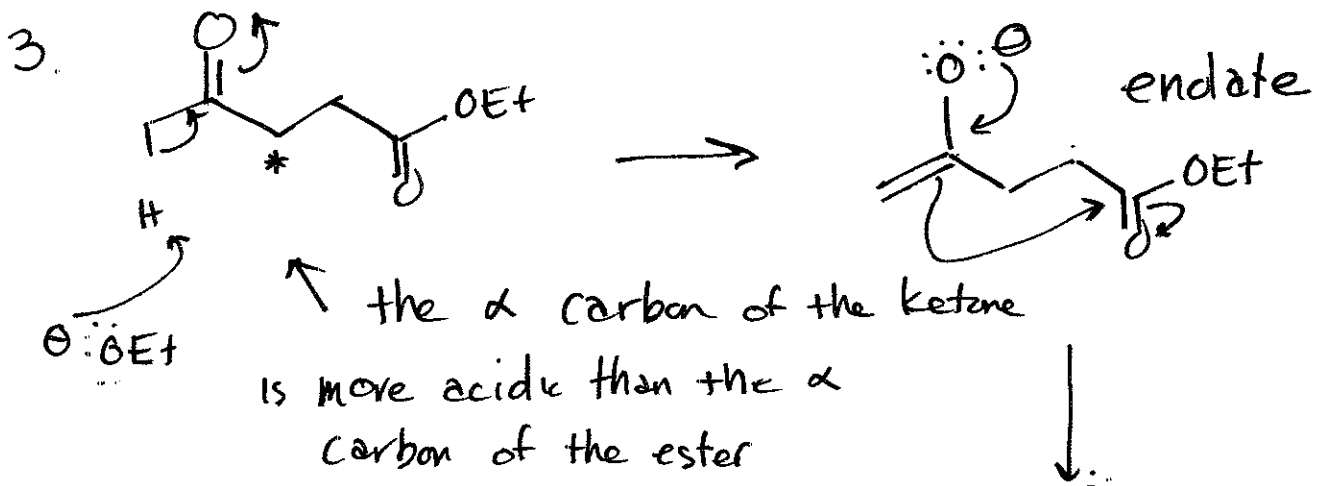 3.
O
OEt
*
O
H
⊖ :ÖEt
:Ö: ⊖
endate
OEt
O
the α carbon of the ketone
is more acidic than the α
carbon of the ester